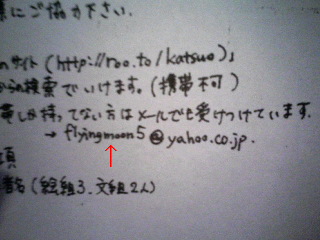 にご協力下さい.
サイト(http://roo.to/katsuo)」
からの検索でいけます。(携帯不可)
しか持ってない方はメールでも受けつけています.
→ flyingmoon5@yahoo.co.jp.
項
者名(絵組3、文組2人)